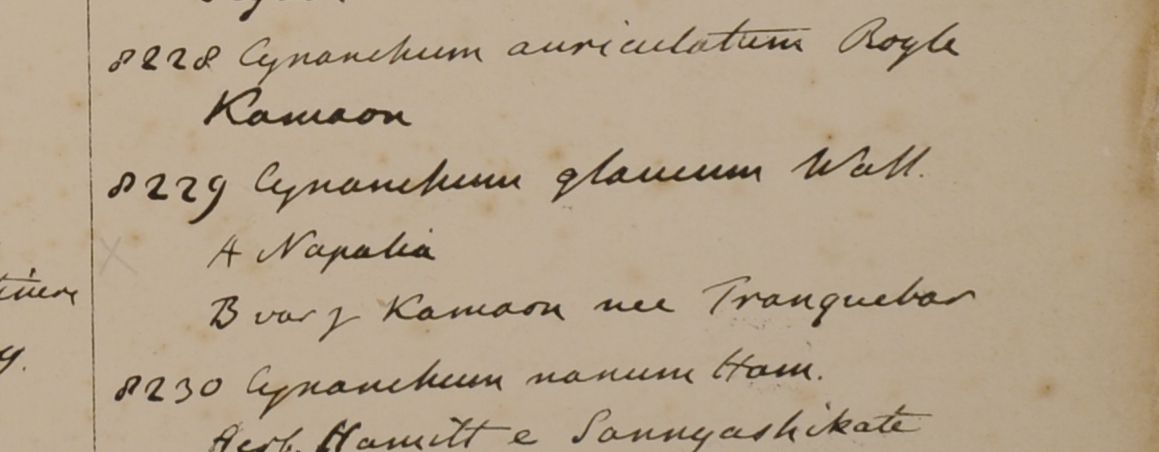 8228 Cynanchum auriculatum Royle
Kamaon
8229 Cynanchum glaucum Wall.
A Napalia
B var? Kamaon nec Tranquebar
8230 Cynanchum nanum Ham.
Herb. Hamilt e Sannyashikate